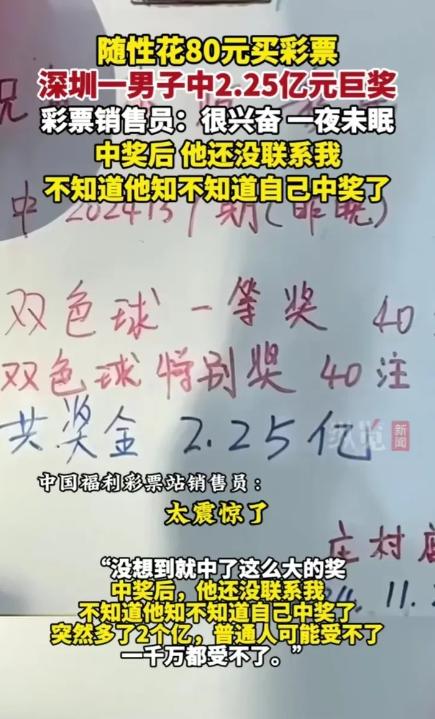 随性花80元买彩票
深圳一男子中2.25亿元巨奖
彩票销售员：很兴奋 一夜未眠
中奖后 他还没联系我
不知道他知不知道自己中奖了
中2024137期(昨晚)
双色球一等奖 40
双色球特别奖 40注
共奖金 2.25亿
纵览
新闻
中国福利彩票站销售员：
太震惊了
庄村
11.
“没想到就中了这么大的奖
中奖后，他还没联系我
不知道他知不知道自己中奖了
突然多了2个亿，普通人可能受不了
一千万都受不了。”